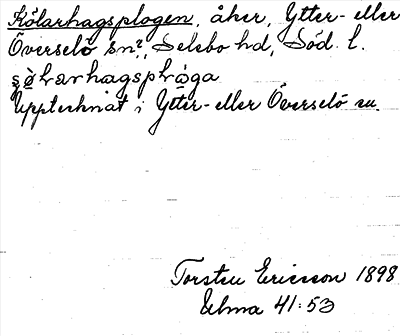 Kolarhagsplogen, åker, Ytter- eller
Överselö sn?, Selebo hd, Söd. l.
Upptecknat i Ytter- eller Överselö sn.
Torsten Ericsson 1898
Ulma 41:53